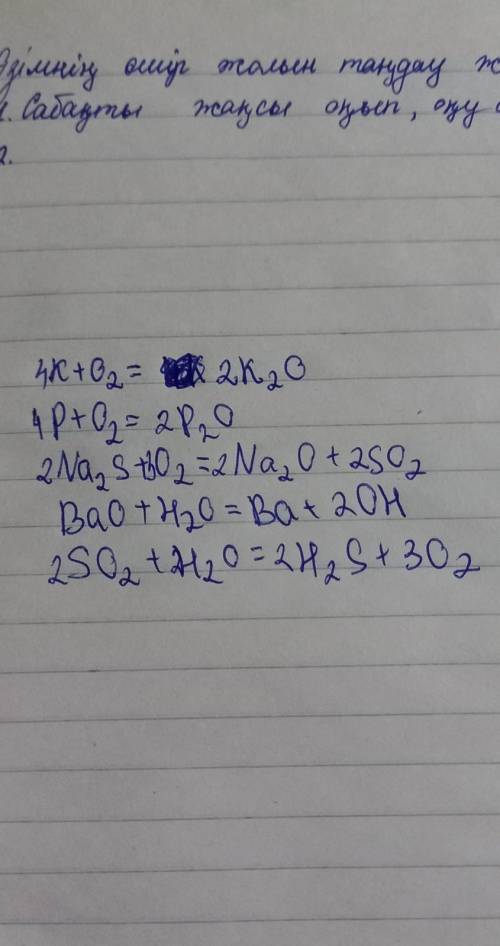 Өзімнің өмір жолын таңдау ж
1. Сабақты жақсы оқып, оқу
2.
4K+O₂= 2K₂O
4P+O₂=2P₂O
2Na₂S+3O₂=2Na₂O+2SO₂
BaO+H₂O=Ba+2OH
2SO₂+2H₂O=2H₂S+3O₂